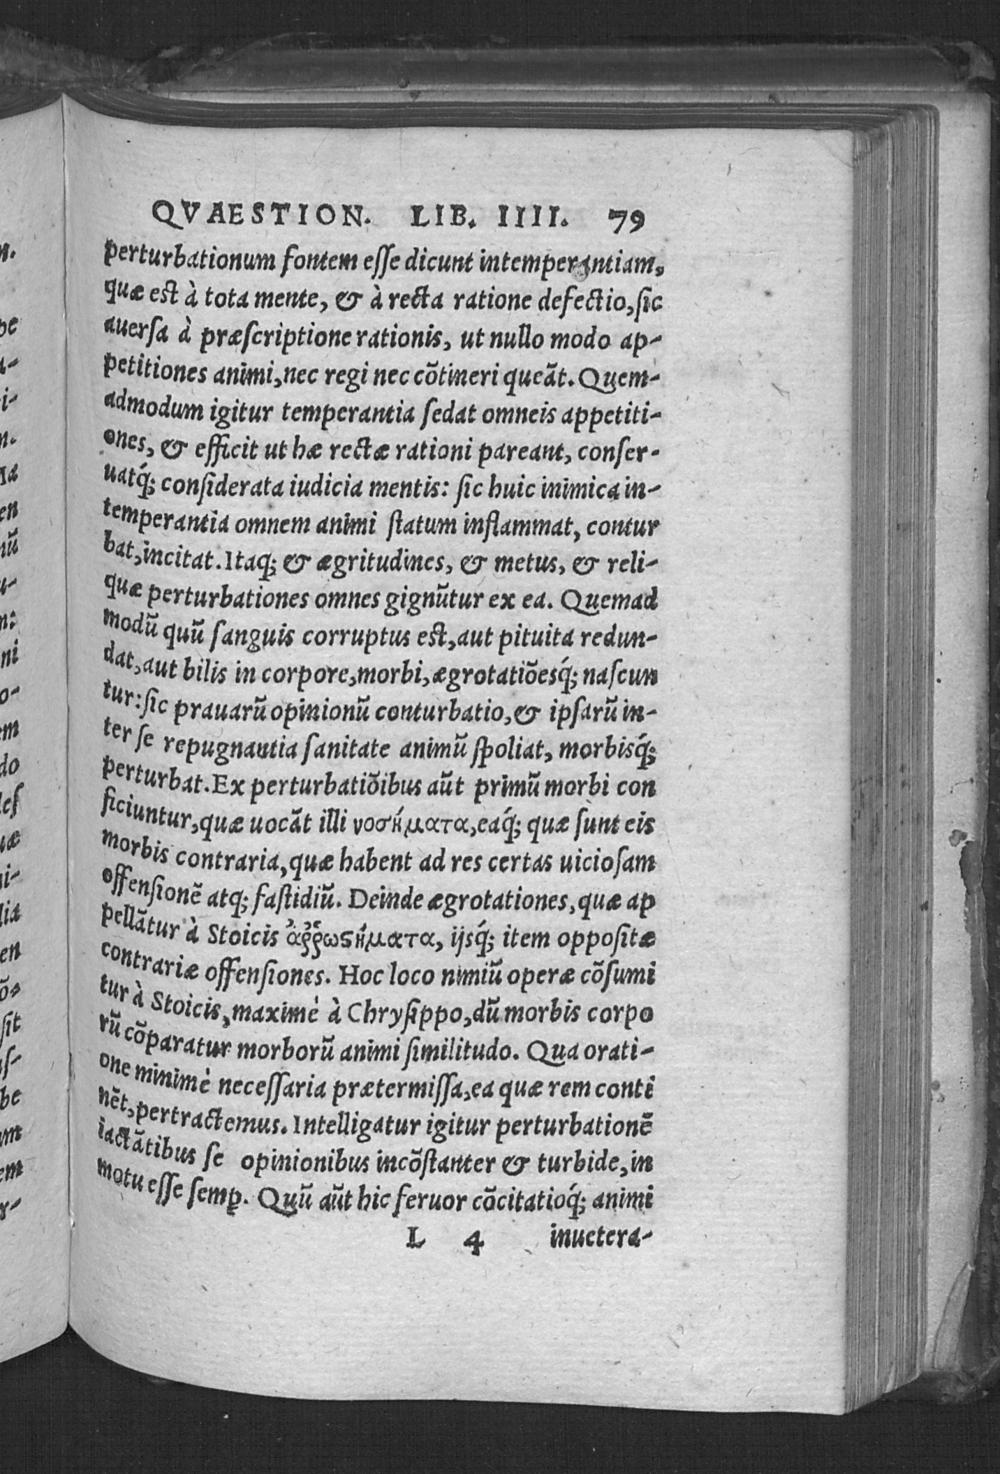 QVAESTION. LIB. IIII. 79
perturbationum fontem esse dicunt intemperantiam,
quæ est à tota mente, & à recta ratione defectio, sic
auersa à præscriptione rationis, ut nullo modo ap-
petitiones animi, nec regi nec cõtineri queãt. Quem-
admodum igitur temperantia sedat omneis appetiti-
ones, & efficit ut hæ rectæ rationi pareant, conser-
uatq́; considerata iudicia mentis: sic huic inimica in-
temperantia omnem animi statum inflammat, contur
bat, incitat. Itaq; & ægritudines, & metus, & reli-
quæ perturbationes omnes gignũtur ex ea. Quemad
modũ quũ sanguis corruptus est, aut pituita redun-
dat, aut bilis in corpore, morbi, ægrotatiõesq́; nascun
tur: sic prauarũ opinionũ conturbatio, & ipsarũ in-
ter se repugnantia sanitate animũ spoliat, morbisq́;
perturbat. Ex perturbatiõibus aũt primũ morbi con
ficiuntur, quæ uocãt illi νοσήματα, eaq́; quæ sunt eis
morbis contraria, quæ habent ad res certas uiciosam
offensionẽ atq; fastidiũ. Deinde ægrotationes, quæ ap
pellãtur à Stoicis ἀῤῥωϛήματα, ijsq́; item oppositæ
contrariæ offensiones. Hoc loco nimiũ operæ cõsumi
tur à Stoicis, maximè à Chrysippo, dũ morbis corpo
rũ cõparatur morborũ animi similitudo. Qua orati-
one minimè necessaria prætermissa, ea quæ rem conti
nẽt, pertractemus. Intelligatur igitur perturbationẽ
iactãtibus se opinionibus incõstanter & turbide, in
motu esse semꝑ. Quũ aũt hic feruor cõcitatioq́; animi
L 4 inuetera-